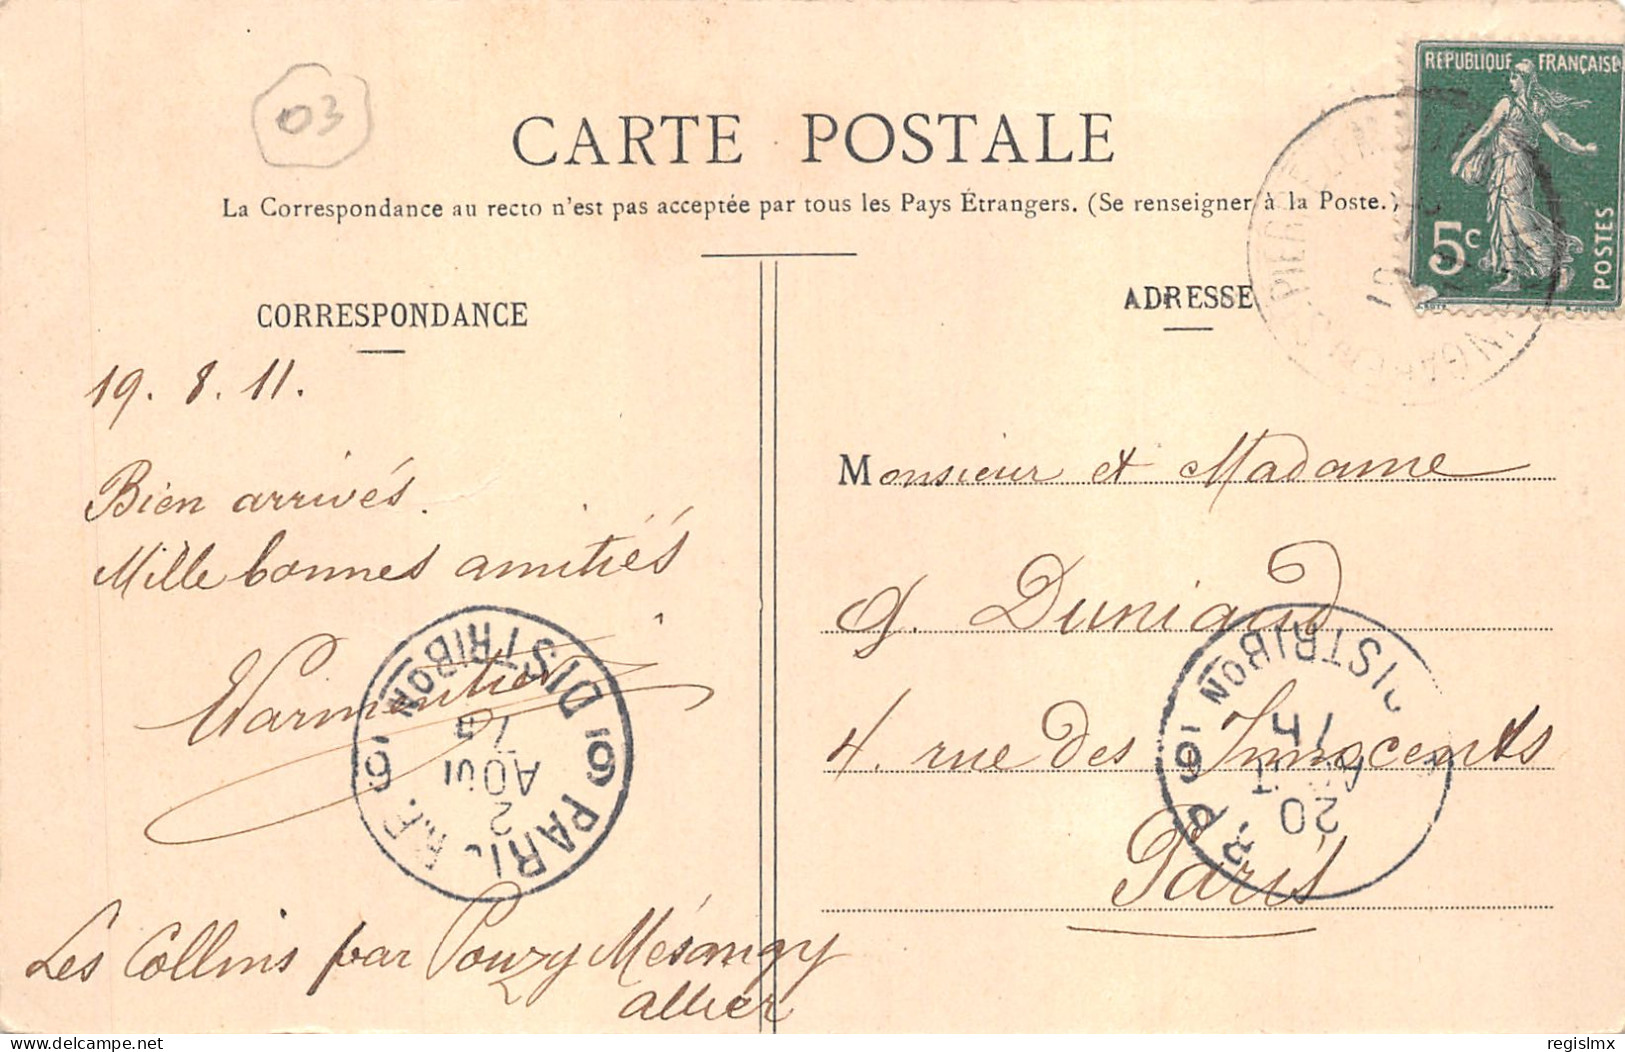 03
CARTE POSTALE
La Correspondance au recto n'est pas acceptée par tous les Pays Étrangers. (Se renseigner à la Poste.)
RÉPUBLIQUE FRANÇAISE
5c
POSTES
CORRESPONDANCE
19. 8. 11.
Bien arrivés.
Mille bonnes amitiés
Les Collins par Pouzy Mésangy
allier
DISTRIBON
AOUT
PARIS R.P.
ADRESSE
Monsieur et Madame
G. Duniaud
4. rue des Innocents
Paris
DISTRIBON
20
delcampe.net
regislmx